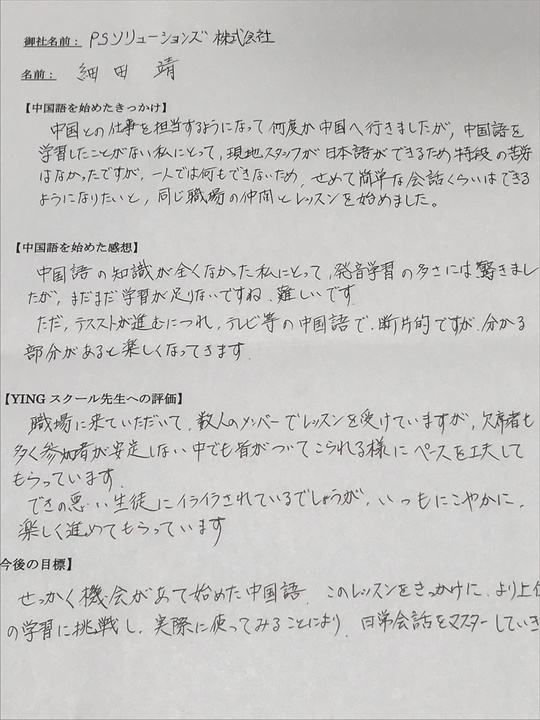 御社名前： PSソリューションズ 株式会社
名前： 細田 靖
【中国語を始めたきっかけ】
中国との仕事を担当するようになって何度か中国へ行きましたが，中国語を
学習したことがない私にとって，現地スタッフが日本語ができるため特段の苦労
はなかったですが，一人では何もできないため，せめて簡単な会話くらいはできる
ようになりたいと，同じ職場の仲間とレッスンを始めました。
【中国語を始めた感想】
中国語の知識が全くなかった私にとって，発音学習の多さには驚きまし
たが，まだまだ学習が足りないですね．難しいです
ただ，テスストが進むにつれ，テレビ等の中国語で，断片的ですが，分かる
部分があると楽しくなってきます．
【YING スクール先生への評価】
職場に来ていただいて，数人のメンバーでレッスンを受けていますが，欠席者も
多く参加者が安定しない中でも皆がついてこられる様にペースを工夫して
もらっています．
できの悪い生徒にイライラされているでしょうが，いつもにこやかに，
楽しく進めてもらっています
今後の目標】
せっかく機会があて始めた中国語．このレッスンをきっかけに，より上位
の学習に挑戦し，実際に使ってみることにより，日常会話をマスターしていき